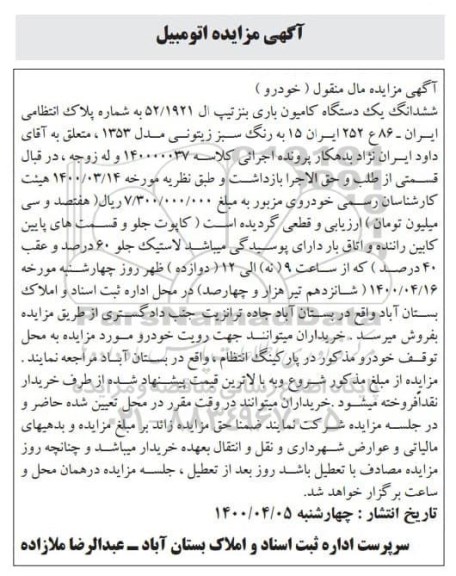 آگهی مزایده اتومبیل
آگهی مزایده مال منقول ( خودرو )
ششدانگ یک دستگاه کامیون باری بنز تیپ ال ۵۲/۱۹۲۱ به شماره پلاک انتظامی
ایران ـ ۸۶ ع ۲۵۲ ایران ۱۵ به رنگ سبز زیتونی مدل ۱۳۵۳ ، متعلق به آقای
داود ایران نژاد بدهکار پرونده اجرائی کلاسه ۱۴۰۰۰۰۰۳۷ و له زوجه ، در قبال
قسمتی از طلب و حق الاجرا بازداشت و طبق نظریه مورخه ۱۴۰۰/۰۳/۱۴ هیئت
کارشناسان رسمی خودروی مزبور به مبلغ ۷/۳۰۰/۰۰۰/۰۰۰ ریال( هفتصد و سی
میلیون تومان ) ارزیابی و قطعی گردیده است ( کاپوت جلو و قسمت های پایین
کابین راننده و اتاق بار دارای پوسیدگی میباشد لاستیک جلو ۶۰ درصد و عقب
۴۰ درصد ) که از ساعت ۹ ( نه) الی ۱۲ ( دوازده ) ظهر روز چهارشنبه مورخه
۱۴۰۰/۰۴/۱۶ ( شانزدهم تیر هزار و چهارصد) در محل اداره ثبت اسناد و املاک
بستان آباد واقع در بستان آباد جاده ترانزیت جنب دادگستری از طریق مزایده
بفروش میرسد . خریداران میتوانند جهت رویت خودرو مورد مزایده به محل
توقف خودرو مذکور در پارکینگ انتظام ، واقع در بستان آباد مراجعه نمایند .
مزایده از مبلغ مذکور شروع و به بالاترین قیمت پیشنهاد شده از طرف خریدار
نقدا فروخته میشود .خریداران میتوانند در وقت مقرر در محل تعیین شده حاضر و
در جلسه مزایده شرکت نمایند ضمنا حق مزایده زائد بر مبلغ مزایده و بدهیهای
مالیاتی و عوارض شهرداری و نقل و انتقال بعهده خریدار میباشد و چنانچه روز
مزایده مصادف با تعطیل باشد روز بعد از تعطیل ، جلسه مزایده درهمان محل و
ساعت برگزار خواهد شد.
تاریخ انتشار : چهارشنبه ۱۴۰۰/۰۴/۰۵
سرپرست اداره ثبت اسناد و املاک بستان آباد ــ عبدالرضا ملازاده